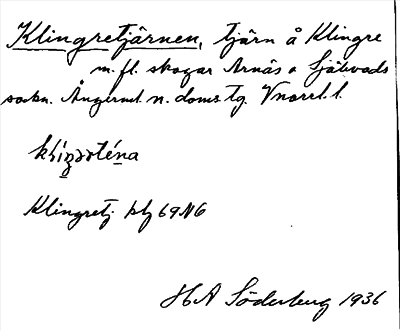 Klingretjärnen, tjärn å Klingre
m. fl. skogar Arnäs o Själevads
sockn. Ångerml. n. doms. tg. Vnorrl. l.
Klingretj. kbl 69 NG
HA Söderberg 1936